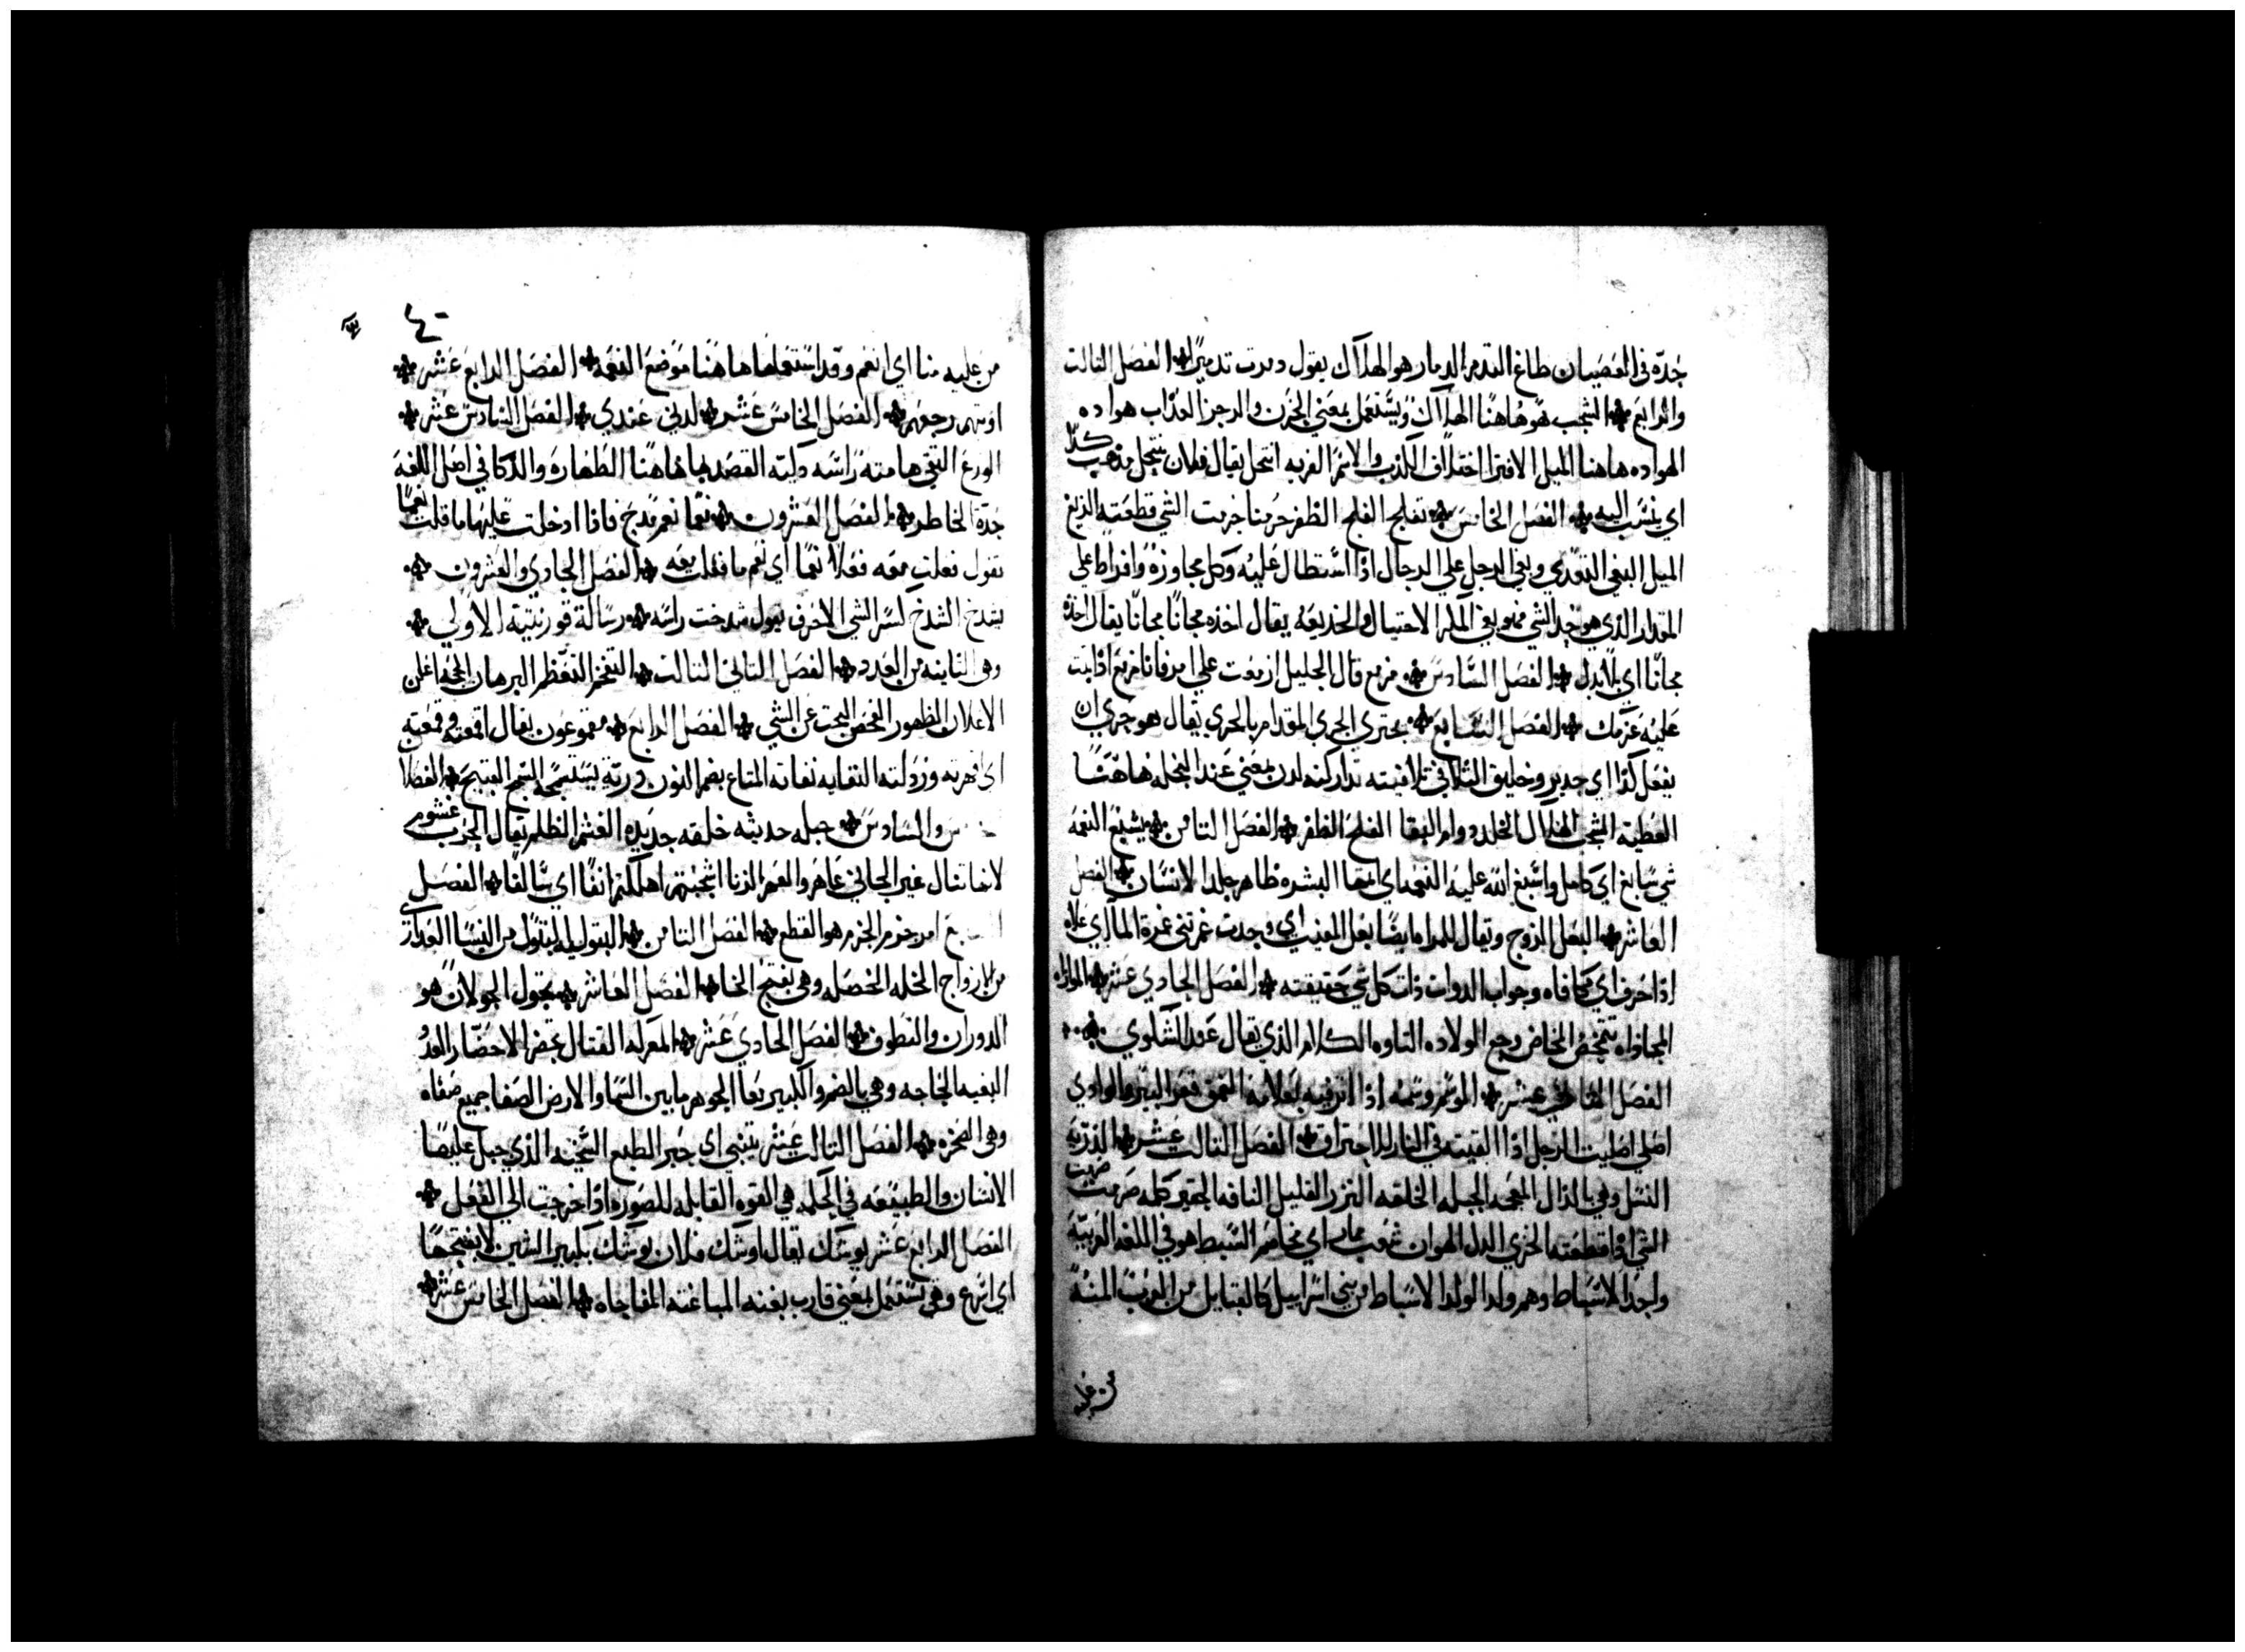 حده في العصيان طاغ التدمر الدمار هو الهلاك يقول دمرت تدميرًا الفصل التالت
والرابع الشجب هو هاهنا الهلاك ويستعمل بمعني الحزن والرجز العذاب هواده
الهواده هاهنا الميل الافترا اختلاق الكذب والاسم الفريه انتحل يقال فلان ينتحل مذهب كذا
اي ينسب اليه الفصل الخامس تفلح الفلح الظفر خرمنا خرمت الشي قطعته الزيغ
الميل البغي التعدي وبغي الرجل علي الرجال اذا استطال عليه وكل مجاوزه وافراط علي
المقدار الذي هو حد الشي فهو بغي المكر الاحتيال والخديعه يقال اخذه مجانًا مجانًا يقال اخذه
مجانًا اي بلا بدل الفصل السادس مزمع قال الخليل ازمعت علي امر فانا مزمع اذا ثبت
عليه عزمك الفصل السابع يجتري الجري المقدام بالحري يقال هو حري ان
يفعل كذا اي جدير وخليق التلافي تلافيته تداركته لدن بمعني عند النحله هاهنا
العطيه الشجب الهلال الخلد دوام البقا الفلح الظفر الفصل التامن يسبغ النعمه
شي سابغ اي كامل واسبغ الله عليه النعمه اي اتمها البشره ظاهر جلد الانسان الفصل
العاشر البعل الزوج ويقال للمراه ايضًا بعل الفيت اي وجدت غمرتني غمرة الما اي علاه
اذا حرف اي مكافاه وجواب الدوات ذات كل شي حقيقته الفصل الحادي عشر الموازاه
المحاذاه تتمخض المخاض وجع الولاده التاوه الكلام الذي يقال عند الشكوي
الفصل التاني عشر الموسم وسمته اذا اثرت فيه بعلامه العمق قعر البير والوادي
اصلي اصليت الرجل اذا القيته في النار للاحتراق الفصل التالت عشر الذريه
النسل وهي بالذال المعجمه الجبله الخلقه النزر القليل التافه الحقير كلمه صرمت صرمت
الشي اذا قطعته الخزي الذل الهوان شعب مارد اي مخامر السبط هو في اللغه العربيه
واحد الاسباط وهم ولد الولد الاسباط من بني اسراييل كالقبايل من العرب المنه
من عليه
٤٠
من عليه منا اي انعم وقد استعملها هاهنا موضع النعمه الفصل الرابع عشر
اوبتهم رجعهم الفصل الخامس عشر لدني عندي الفصل السادس عشر
الورع التقي هامته راسه زكيته القصد بها هاهنا الطهاره والذكا في اصل اللغه
حدة الخاطر الفصل العشرون نعما نعم مدح فاذا ادخلت عليها ما قلت نعمًا
تقول فعلت معه فعلاً نعمًا اي نعم ما فعلت معه الفصل الحادي والعشرون
يشدخ الشدخ كسر الشي الاجوف تقول شدخت راسه رسالة قورنتية الاولي
وهي التانيه من العدد الفصل التاني التالت التفخم التعظم البرهان الحجه اعلن
الاعلان الظهور الفحص البحت عن الشي الفصل الرابع مقموعون يقال اقمعته وقمعته
اي قهرته وزدلته النفايه نفاية المتاع بضم النون ورديه يستسمجه السمج القبيح الفصل
والسادس جبله حديثه خلقه جديده الغشم الظلم يقال الحرب غشوم
لانها تنال غير الجاني عاهر والعهر الزنا اشجبتهم اهلكتم انفًا اي سالفًا الفصل
السابع امر خرم الخرم هو القطع الفصل التامن البتوليه البتول من النسا العداري
من الازواج الخله الخصله وهي بفتح الخا الفصل العاشر يجول الجولان هو
الدوران والتطوف الفصل الحادي عشر المعركه القتال يحضر الاحضار العدو
البغيه الحاجه وهي بالضم والكسر معا الجو هو ما بين السما والارض الصفا جميع صفاه
وهي الصخره الفصل التالت عشر يتنبي اي يخبر الطبع السجيه الذي جبل عليها
الانسان والطبيعه في الجمله هي القوه القابله للصوره اذا خرجت الي الفعل
الفصل الرابع عشر يوشك يقال اوشك فلان يوشك بكسر الشين لا بفتحها
اي اسرع وهي تستعمل بمعني قارب بغته المباغته المفاجاه الفصل الخامس عشر